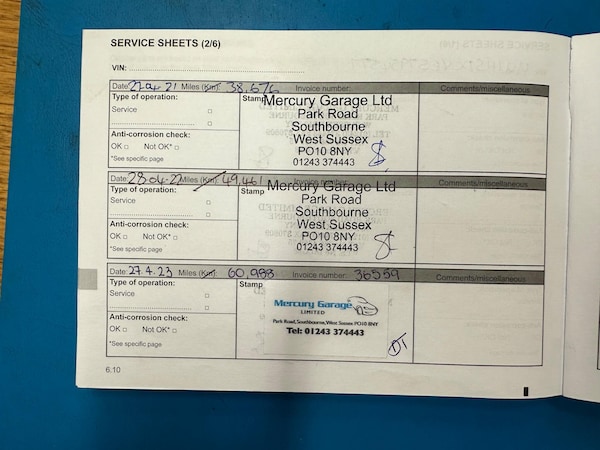 SERVICE SHEETS (2/6)
VIN:
Date 27 04 21 Miles (Km): 38,676 Invoice number: Comments/miscellaneous
Type of operation: Stamp
Service
Anti-corrosion check:
OK □ Not OK* □
*See specific page
Mercury Garage Ltd
Park Road
Southbourne
West Sussex
PO10 8NY
01243 374443
Date: 28.04.22 Miles (Km): 49,461 Invoice number: Comments/miscellaneous
Type of operation: Stamp
Service
Anti-corrosion check:
OK □ Not OK* □
*See specific page
Mercury Garage Ltd
Park Road
Southbourne
West Sussex
PO10 8NY
01243 374443
Date 27.4.23 Miles (Km): 60,988 Invoice number: 36559 Comments/miscellaneous
Type of operation: Stamp
Service
Anti-corrosion check:
OK □ Not OK* □
*See specific page
Mercury Garage
LIMITED
Park Road, Southbourne, West Sussex PO10 8NY
Tel: 01243 374443
DT
6.10